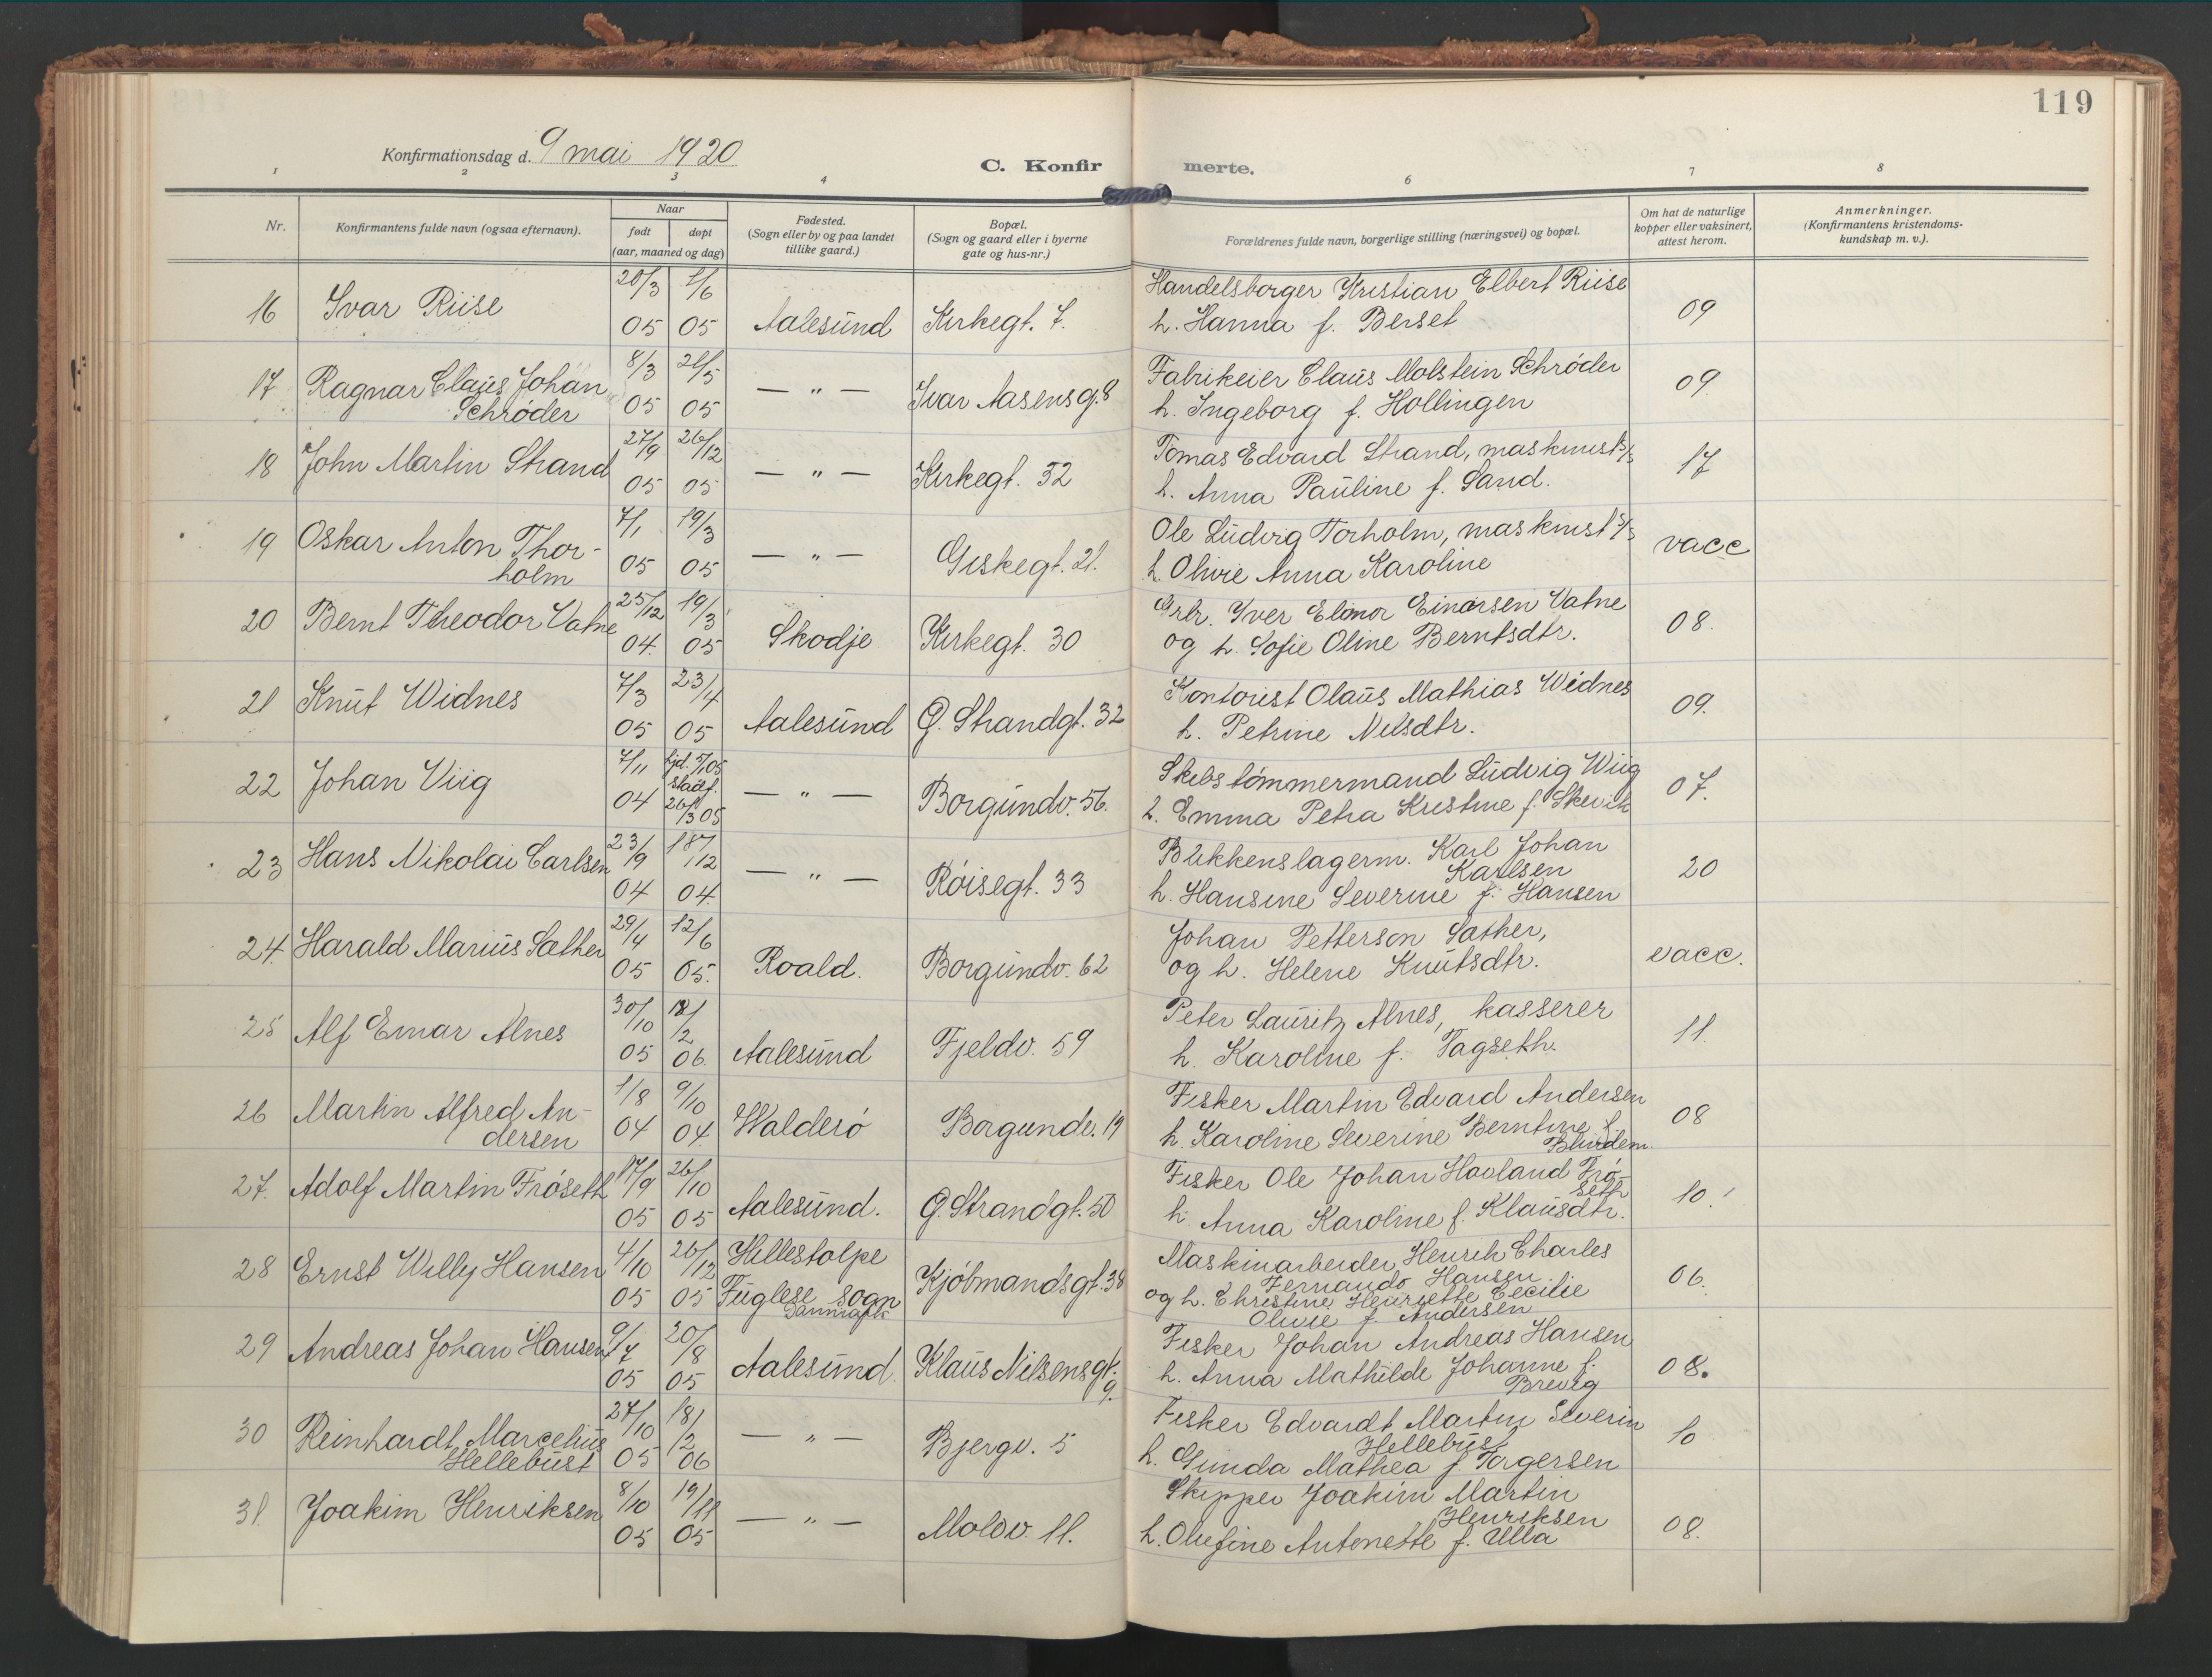 119
Konfirmationsdag d. 9 mai 1920
C. Konfir merte.
1 2 3 4 6 7 8
Nr. Konfirmantens fulde navn (ogsaa efternavn). Naar født døpt (aar, maaned og dag) Fødested. (Sogn eller by og paa landet tillike gaard.) Bopæl. (Sogn og gaard eller i byerne gate og hus-nr.) Forældrenes fulde navn, borgerlige stilling (næringsvei) og bopæl. Om hat de naturlige kopper eller vaksinert, attest herom. Anmerkninger. (Konfirmantens kristendoms-kundskap m. v.).
20/3 1/6 Handelsborger Kristian Elbert Riise
16 Ivar Riise 05 05 Aalesund Kirkegt. 7. h. Hanna f. Berset 09
8/3 21/5 Fabrikeier Claus Molstein Schrøder
17 Ragnar Claus Johan — „ — Ivar Aasensg. 8 09.
Schrøder 05 05 h. Ingeborg f. Hollingen
27/9 26/12 Tomas Edvard Strand, maskinist s/s
18 John Martin Strand — „ — Kirkegt. 52 17
05 05 h. Anna Pauline f. Sand.
7/1 19/3 Ole Ludvig Torholm, maskinist s/s
19 Oskar Anton Thor- — „ — Giskegt. 21. vacc
holm 05 05 h. Olivie Anna Karoline
25/12 19/3 Grbr. Iver Elenor Einarsen Vatne
20 Bernt Theodor Vatne Skodje Kirkegt. 30 08.
04. 05 og h. Sofie Oline Berntsdtr.
7/3 23/4 Kontorist Olaus Mathias Widnes
21 Knut Widnes Aalesund G. Strandgt. 32 09.
05 05 h. Petrine Nilsdtr.
7/11 hjd. 5/1 05 Skibstømmermand Ludvig Wiig
22 Johan Viig stadf. — „ — Borgundv. 56. 07.
04 26/3 05 h. Emma Petra Kristine f. Skevik
23/9 18/12 Blikkenslagerm. Karl Johan
23 Hans Nikolai Carlsen — „ — Røisegt. 33 Karlsen 20
04 04. h. Hansine Severine f. Hansen
29/4 12/6 Johan Petterson Sæther,
24. Harald Marius Sæther Roald. Borgundv. 62 vacc.
05 05. og h. Helene Knutsdtr.
30/10 18/2 Peter Lauritz Alnes, kasserer
25 Alf Einar Alnes Aalesund Fjeldv. 59 11.
05 06. h. Karoline f. Fagseth.
1/8 9/10 Fisker Martin Edvard Andersen
26 Martin Alfred An- Walderø Borgundv. 19 08
dersen 04 04. h. Karoline Severine Berntine f. Blindem.
17/9 26/10 Fisker Ole Johan Hovland Frø-
27. Adolf Martin Frøseth Aalesund. G. Strandgt. 50 seth 10.
05 05 h. Anna Karoline f. Klausdtr.
4/10 26/12 Hillestolpe Maskinarbeider Henrik Charles
28 Ernst Willy Hansen Kjøbmandsgt. 38 Fernando Hansen. 06.
05 05 Fuglese sogn og h. Christine Henriette Cecilie
Danmark Olivie f. Andersen
9/7 20/8 Fisker Johan Andreas Hansen
29 Andreas Johan Hansen Aalesund. Klaus Nilsensgt. 9. 08.
05 05 h. Anna Mathilde Johanne f. Brevig
27/10 18/2 Fisker Edvardt Martin Severin
30 Reinhardt Marcelius — „ — Bjergv. 5 Hellebust 10
Hellebust 05 06 h. Gunda Mathea f. Torgersen
8/10 19/11 Skipper Joakim Martin
31. Joakim Henriksen — „ — Moldv. 11. Henriksen 08.
05 05 h. Olufine Antonette f. Ulla